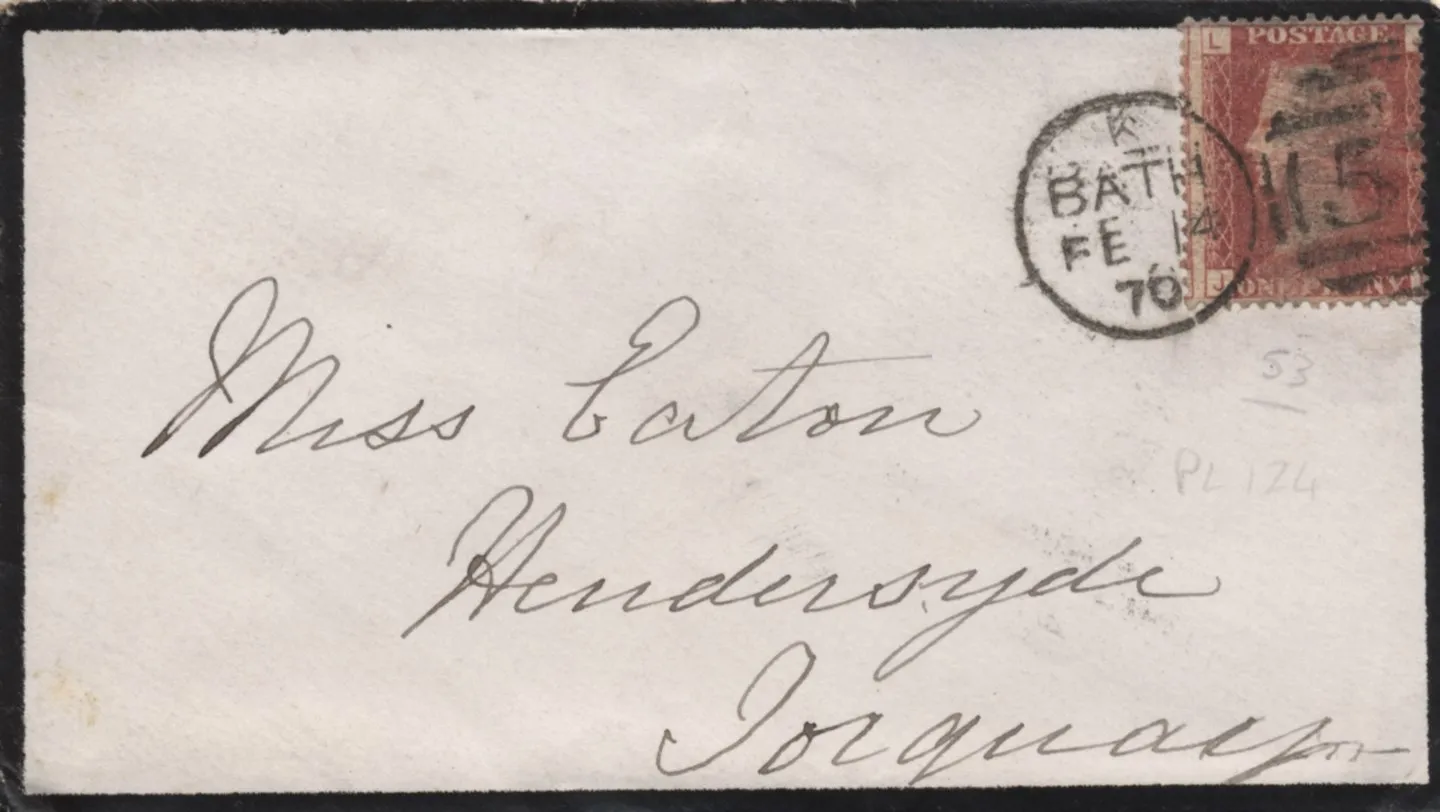 L POSTAGE
K
BATH
FE 14
70
53
J ONE PENNY
53
PL 124
Miss Eaton
Hendersyde
Torquay